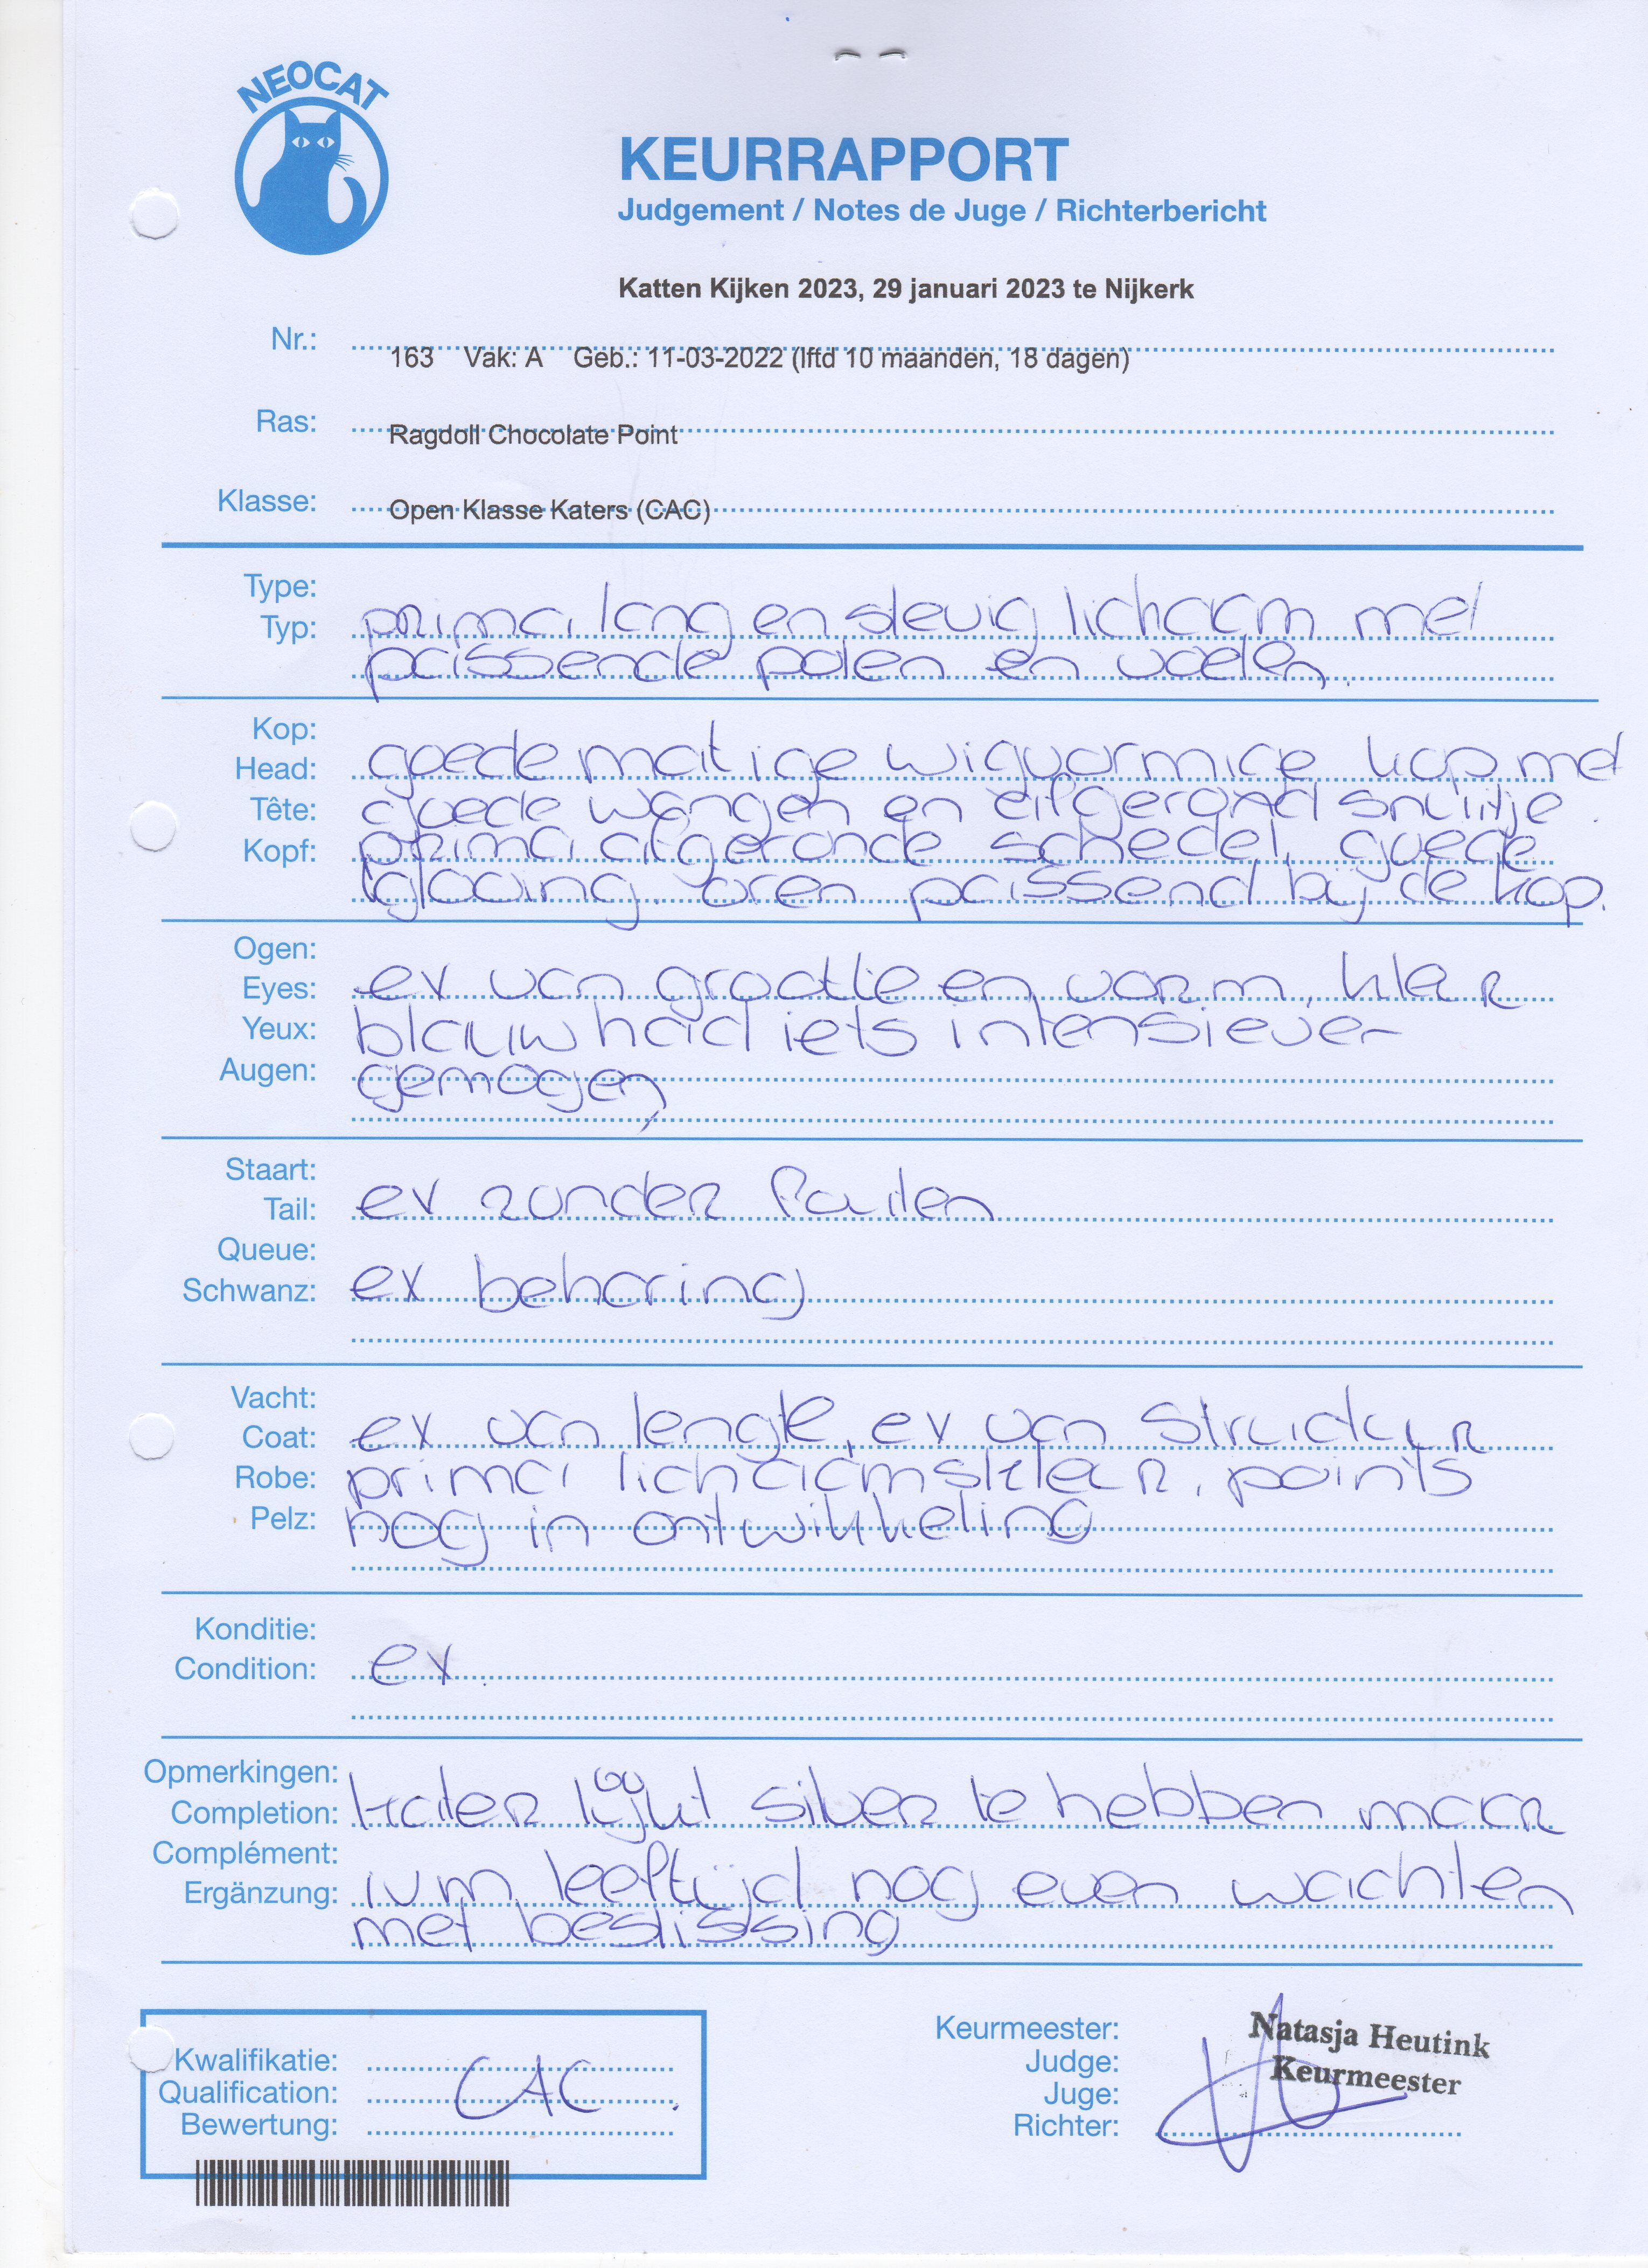 NEOCAT
KEURRAPPORT
Judgement / Notes de Juge / Richterbericht
Katten Kijken 2023, 29 januari 2023 te Nijkerk
Nr.: 163 Vak: A Geb.: 11-03-2022 (lftd 10 maanden, 18 dagen)
Ras: Ragdoll Chocolate Point
Klasse: Open Klasse Katers (CAC)
Type:
Typ: prima lang en stevig lichaam met
passende poten en voeten.
Kop:
Head: goede matige wigvormige kop met
Tête: goede wangen en afgerond snuitje.
Kopf: prima afgeronde schedel, goede
glooing. oren passend bij de kop.
Ogen:
Eyes: ex van grootte en vorm, klear
Yeux: blauw had iets intensiever
Augen: gemogen
Staart:
Tail: ex zonder fouten
Queue:
Schwanz: ex beharing
Vacht:
Coat: ex van lengte, ex van structuur
Robe: prima lichaamsklear, points
Pelz: nog in ontwikkeling
Konditie:
Condition: ex.
Opmerkingen:
Completion: kater lijkt silver te hebben maar
Complément:
Ergänzung: ivm leeftijd nog even wachten
met beslissing
Kwalifikatie:
Qualification: CAC.
Bewertung:
Keurmeester: Natasja Heutink
Judge: Keurmeester
Juge:
Richter: